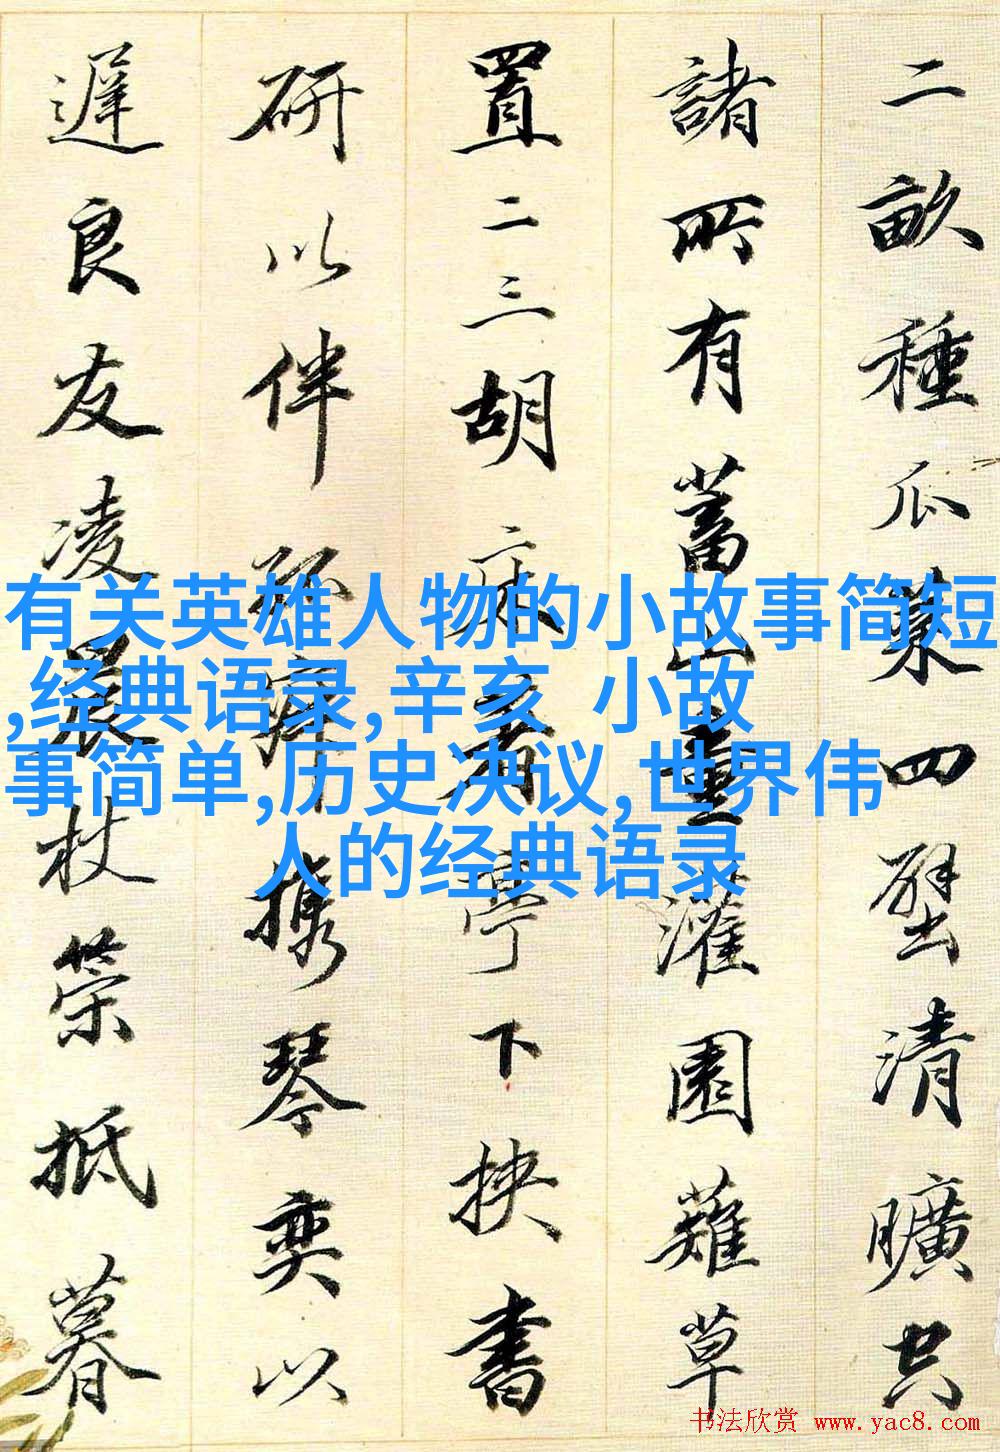 二畝種瓜菜四壁清曠空
諸所有蓄山童灌園薙草
置二三胡床着亭下挾書
研以伴孤寂携琴奕以
遲良友凌晨杖策抵暮
有关英雄人物的小故事简短
,经典语录,辛亥 小故
事简单,历史决议,世界伟
人的经典语录
书法欣赏 www.yac8.com